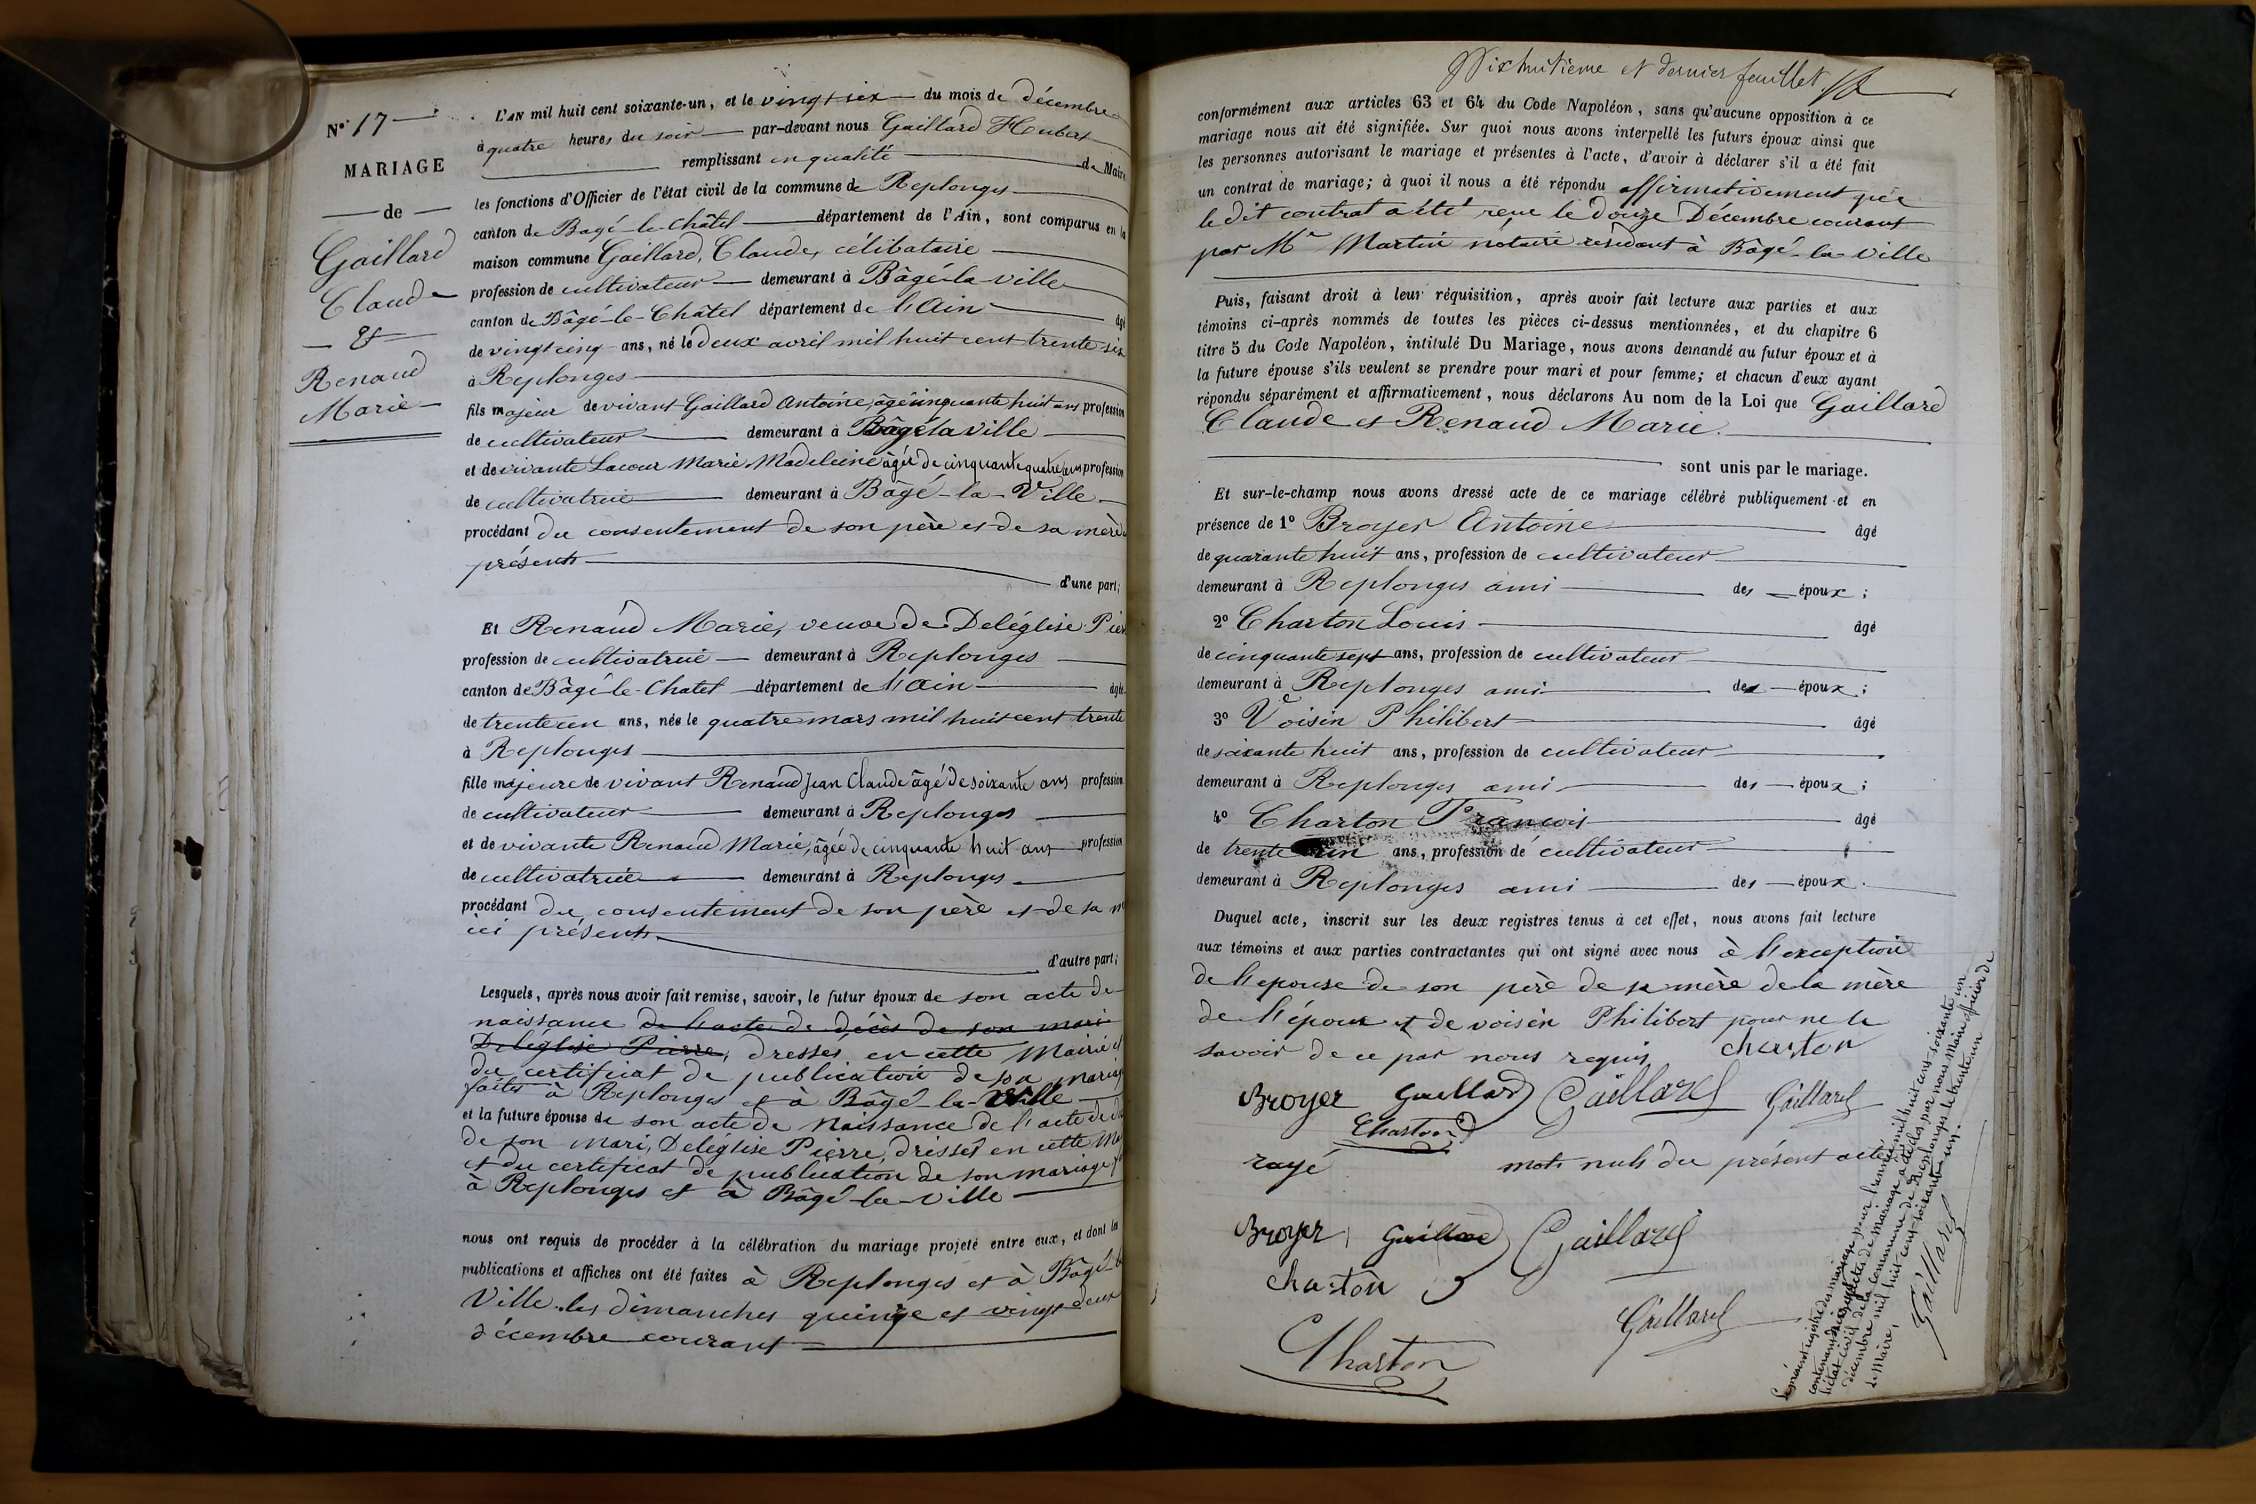 N° 17
MARIAGE
de
Gaillard
Claude
&
Renaud
Marie
L'AN mil huit cent soixante-un, et le vingt six du mois de décembre
à quatre heures du soir par-devant nous Gaillard Hubert
remplissant en qualité de Maire
les fonctions d'Officier de l'état civil de la commune de Replonges
canton de Bagé-le-Châtel département de l'Ain, sont comparus en la
maison commune Gaillard, Claude, célibataire
profession de cultivateur demeurant à Bâgé-la-ville
canton de Bâgé-le-Châtel département de l'Ain âgé
de vingt cinq ans, né le deux avril mil huit cent trente six
à Replonges
fils majeur de vivant Gaillard Antoine, âgé cinquante huit ans profession
de cultivateur demeurant à Bâgé la ville
et de vivante Lacour Marie Madeleine âgée de cinquante quatre ans profession
de cultivatrice demeurant à Bâgé-la-Ville
procédant du consentement de son père et de sa mère
présents
d'une part;
Et Renaud Marie, veuve de Deléglise
profession de cultivatrice demeurant à Replonges
canton de Bâgé-le-Chatel département de l'Ain âgée
de trente un ans, née le quatre mars mil huit cent trente
à Replonges
fille majeure de vivant Renaud Jean Claude âgé de soixante ans profession
de cultivateur demeurant à Replonges
et de vivante Renaud Marie, âgée de cinquante huit ans profession
de cultivatrice demeurant à Replonges
procédant du consentement de son père et de sa
ici présents
d'autre part;
Lesquels, après nous avoir fait remise, savoir, le futur époux de son acte de
naissance de l'acte de décès de son mari
Deléglise Pierre, dressés en cette Mairie et
du certificat de publication de son mariage
faites à Replonges et à Bâgé-la-Ville
et la future épouse de son acte de Naissance de l'acte de
de son mari, Deléglise Pierre, dressés en cette
et du certificat de publication de son mariage
à Replonges et à Bâgé-la-ville
nous ont requis de procéder à la célébration du mariage projeté entre eux, et dont les
publications et affiches ont été faites à Replonges et à Bâgé-la
Ville les dimanches quinze et vingt deux
décembre courant
Dix huitième et dernier feuillet
conformément aux articles 63 et 64 du Code Napoléon, sans qu'aucune opposition à ce
mariage nous ait été signifiée. Sur quoi nous avons interpellé les futurs époux ainsi que
les personnes autorisant le mariage et présentes à l'acte, d'avoir à déclarer s'il a été fait
un contrat de mariage; à quoi il nous a été répondu affirmativement que
le dit contrat a été reçu le douze Décembre courant
par Me Martin notaire résidant à Bâgé-la ville
Puis, faisant droit à leur réquisition, après avoir fait lecture aux parties et aux
témoins ci-après nommés de toutes les pièces ci-dessus mentionnées, et du chapitre 6
titre 5 du Code Napoléon, intitulé Du Mariage, nous avons demandé au futur époux et à
la future épouse s'ils veulent se prendre pour mari et pour femme; et chacun d'eux ayant
répondu séparément et affirmativement, nous déclarons Au nom de la Loi que Gaillard
Claude et Renaud Marie
sont unis par le mariage.
Et sur-le-champ nous avons dressé acte de ce mariage célébré publiquement et en
présence de 1° Broyer Antoine âgé
de quarante huit ans, profession de cultivateur
demeurant à Replonges ami des époux;
2° Charton Louis âgé
de cinquante sept ans, profession de cultivateur
demeurant à Replonges ami des époux;
3° Voisin Philibert âgé
de soixante huit ans, profession de cultivateur
demeurant à Replonges ami des époux;
4° Charton François âgé
de trente un ans, profession de cultivateur
demeurant à Replonges ami des époux.
Duquel acte, inscrit sur les deux registres tenus à cet effet, nous avons fait lecture
aux témoins et aux parties contractantes qui ont signé avec nous à l'exception
de l'épouse de son père de sa mère de la mère
de l'époux et de voisin Philibert pour ne le
savoir de ce par nous requis charton
Broyer Gaillard Gaillard Gaillard
Charton
rayé mots nuls du présent acte
Broyer Gaillard Gaillard
charton
Gaillard
Charton
Le présent registre des mariages pour l'année mil huit cent soixante un
contenant actes de mariage, a été clos par nous Maire officier de
l'état civil de la commune de Replonges le trente un
décembre mil huit cent soixante un.
Le Maire,
Gaillard